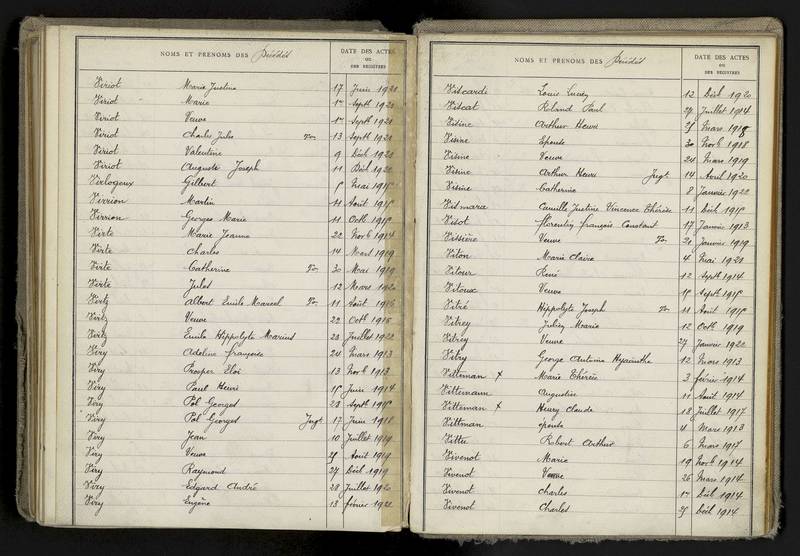 NOMS ET PRÉNOMS DES Décédés
DATE DES ACTES
OU
DES REGISTRES
Viriot Marie Justine 17 Juin 1920
Viriot Marie 1er Septb 1920
Viriot Veuve 1er Septb 1920
Viriot Charles Jules 13 Septb 1920
Viriot Valentine 9 Décb 1920
Viriot Auguste Joseph 11 Décb 1920
Virlogeux Gilbert Mai
Virrion Martin 11 Août
Virrion Georges Marie 11 Octb
Virte Marie Jeanne 22 Novb 1914
Virte Charles 14 Mars 1919
Virte Catherine 30 Mai 1919
Virte Jules 12 Mars 1920
Virtz Albert Emile Marcel 11 Août 1916
Virtz Veuve 22 Octb 1916
Virtz Emile Hippolyte Marius 28 Juillet 1922
Viry Adeline françoise 24 Mars 1913
Viry Prosper Eloi 13 Novb 1913
Viry Paul Henri Juin 1914
Viry Pol Georges 29 Septb
Viry Pol Georges Jugt 17 Juin 1918
Viry Jean 10 Juillet 1919
Viry Veuve Août 1919
Viry Raymond 27 Décb 1919
Viry Edgard André 28 Juillet 1920
Viry Eugène 13 février 1921
NOMS ET PRÉNOMS DES Décédés
DATE DES ACTES
OU
DES REGISTRES
Viscardi Louis 12 Décb 1920
Viscat Roland Paul 27 Juillet 1914
Visine Arthur Henri 25 Mars 1918
Visine Epouse 30 Novb 1918
Visine Veuve 24 Mars 1919
Visine Arthur Henri Jugt 14 Avril 1920
Visine Catherine 8 Janvier 1922
Vismara Camille Justine Vincence Thérèse 11 Décb
Visot florentin françois Constant 17 Janvier 1913
Vissière Veuve 20 Janvier 1919
Viton Marie Claire 4 Mai 1921
Vitour René 12 Septb 1914
Vitoux Veuve Septb
Vitré Hippolyte Joseph 11 Août
Vitrey Julien Marie 12 Octb 1919
Vitrey Veuve 27 Janvier 1922
Vitry George Antoine Hyacinthe 12 Mars 1913
Vitteman x Marie Thérèse 3 février 1914
Vittemann Augustin 11 Août 1914
Vitteman x Henry Claude 18 Juillet 1917
Vittman épouse 4 Mars 1913
Vittu Robert Arthur 6 Mars 1917
Vivenot Marie 19 Novb 1914
Vivenot Veuve 26 Mars 1914
Vivenot Charles 1er Décb 1914
Vivenot Charles 25 Décb 1914